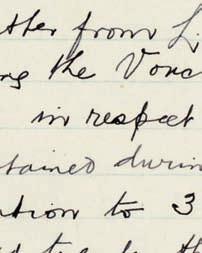 tter from L.
ng the Vouc
in respect
tained durin
ation to 3